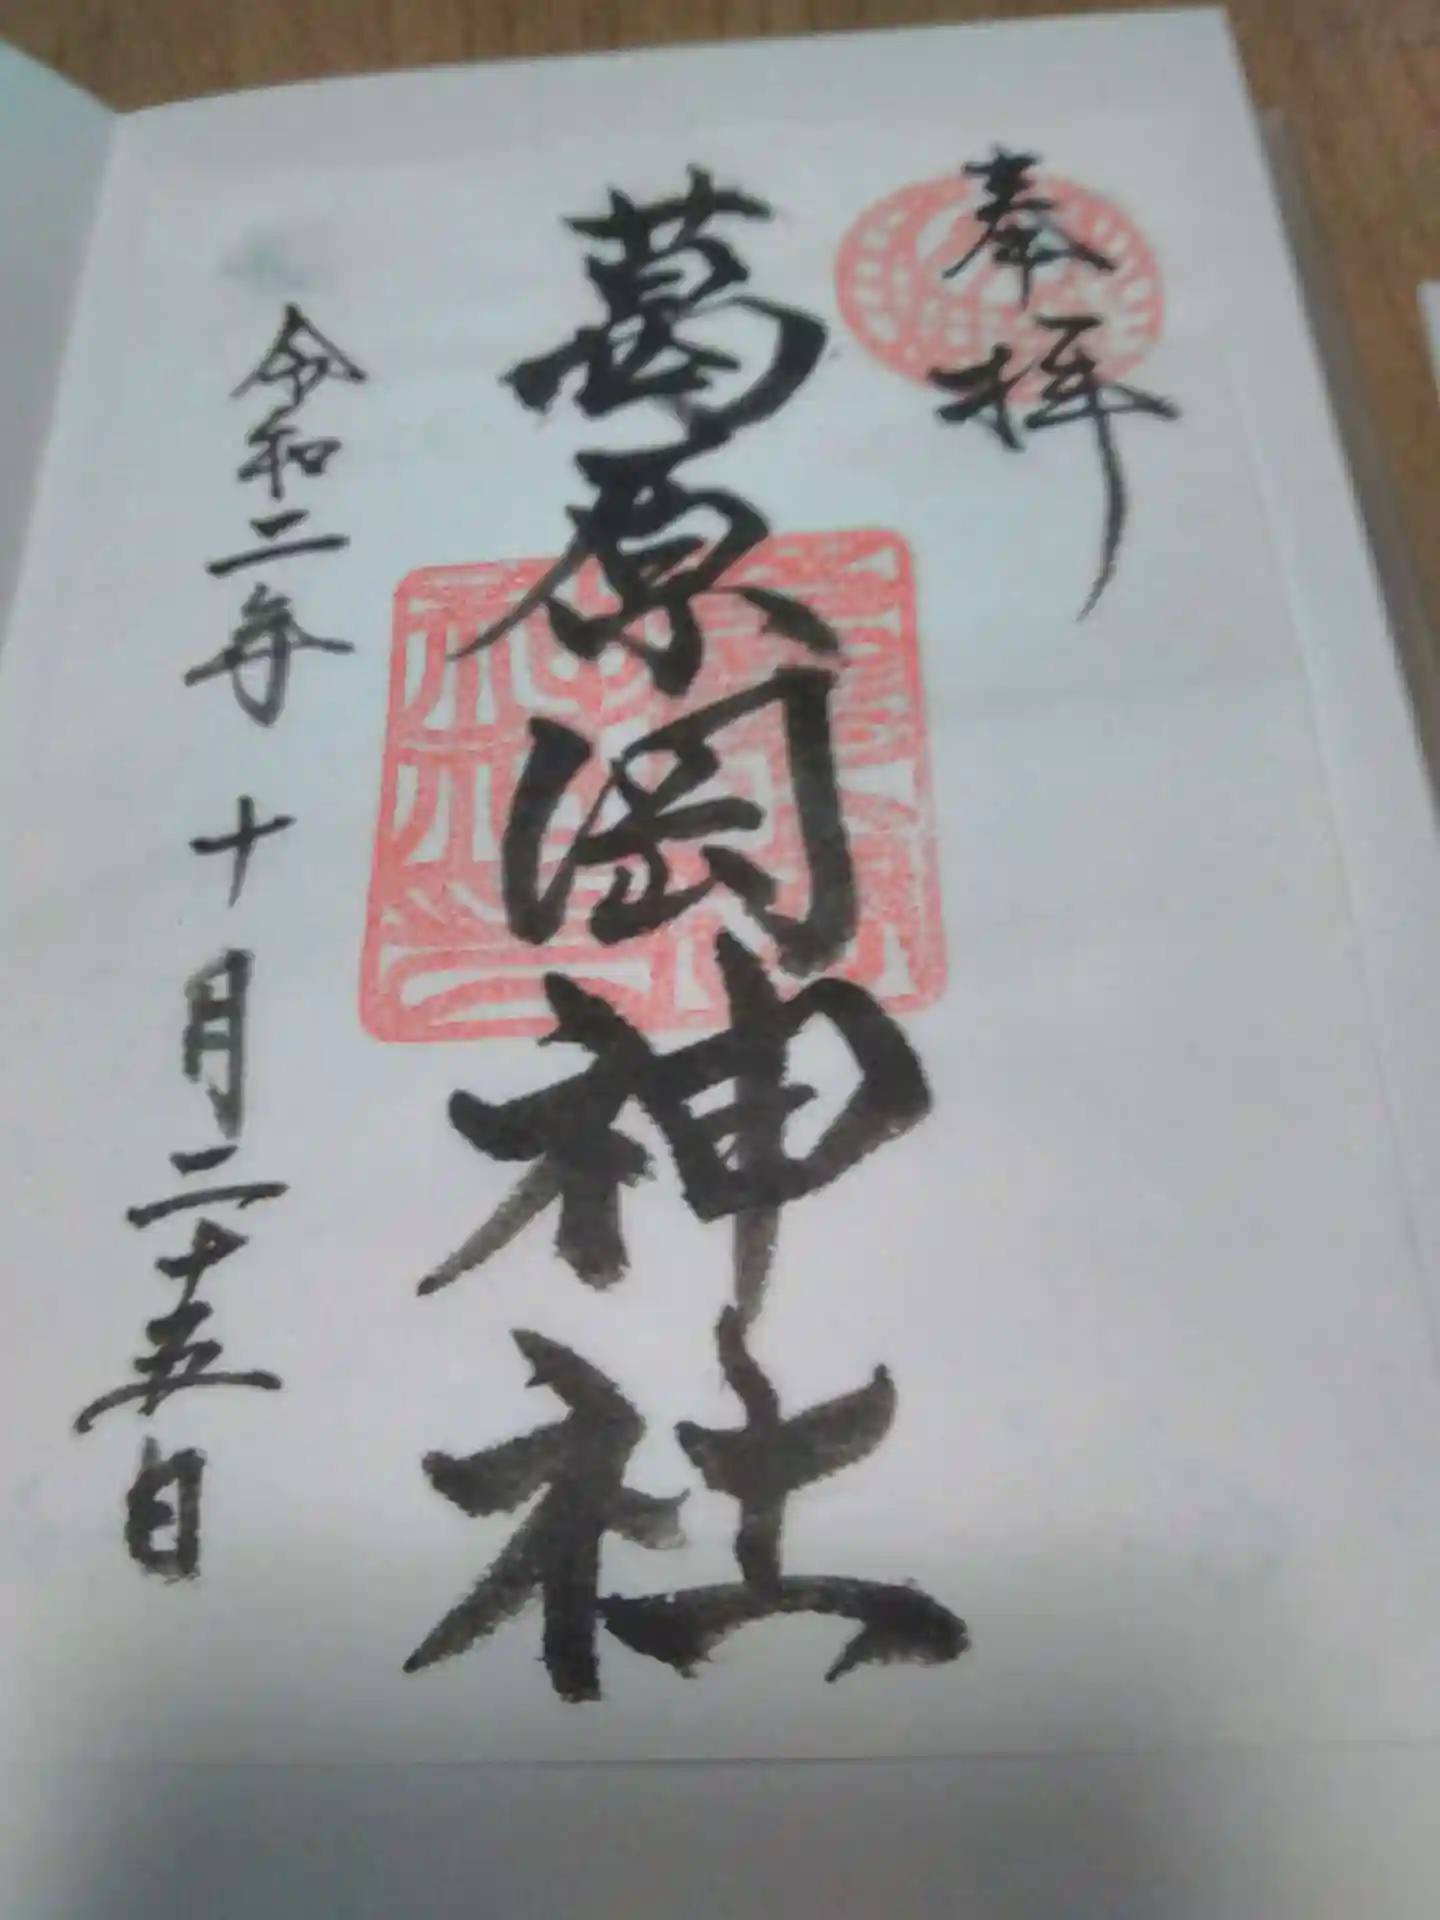 奉拝
葛原岡神社
令和二年 十月二十五日